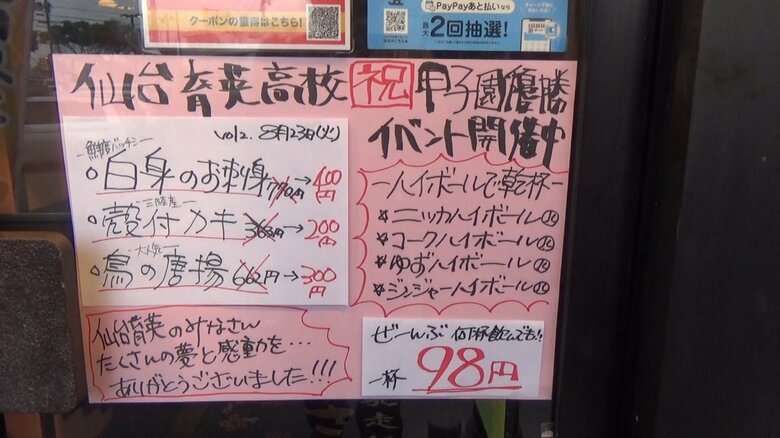 クーポンの獲得はこちら!
PayPayあと払いなら
最大2回抽選!
仙台育英高校 祝 甲子園優勝
イベント開催中
vol2. 8月23日(火)
鮮度バッチシ
○白身のお刺身 770円→400円
三陸産
○殻付カキ 363円→200円
大人気
○鳥の唐揚 662円→300円
ハイボールで乾杯
☆ニッカハイボール
☆コークハイボール
☆ゆずハイボール
☆ジンジャーハイボール
仙台育英のみなさん
たくさんの夢と感動を…
ありがとうございました!!!
ぜーんぶ 何杯飲んでも!!
一杯 98円